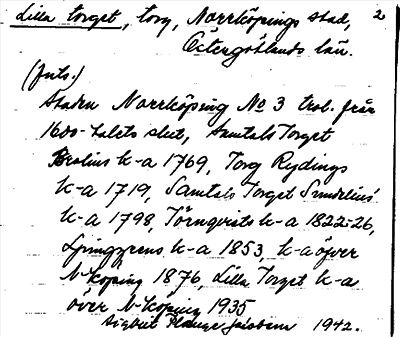 Lilla torget, torg, Norrköpings stad, 2
Östergötlands län.
(Juts.)
Staden Norrköping No 3 trol. från
1600-talets slut, Samtals Torget
Brolins k-a 1769, Torg Rydings
k-a 1719, Samtals Torget Sundelius'
k-a 1798, Törnqvists k-a 1822-26,
Ljunggrens k-a 1853, k-a öfver
N-köping 1876, Lilla Torget k-a
över N-köping 1935
Sigbrit Plænge Jacobson 1942.